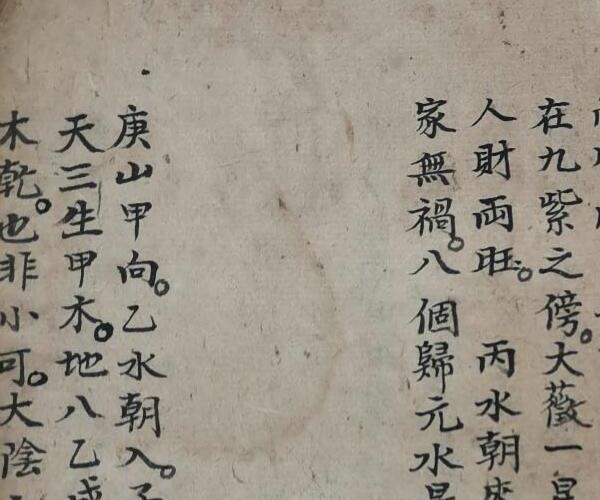 在九紫之傍。大薇一
人財両旺。丙水朝
家無禍。八個歸元水
庚山甲向。乙水朝入。
天三生甲木。地八乙
木乾。也非小可。大陰